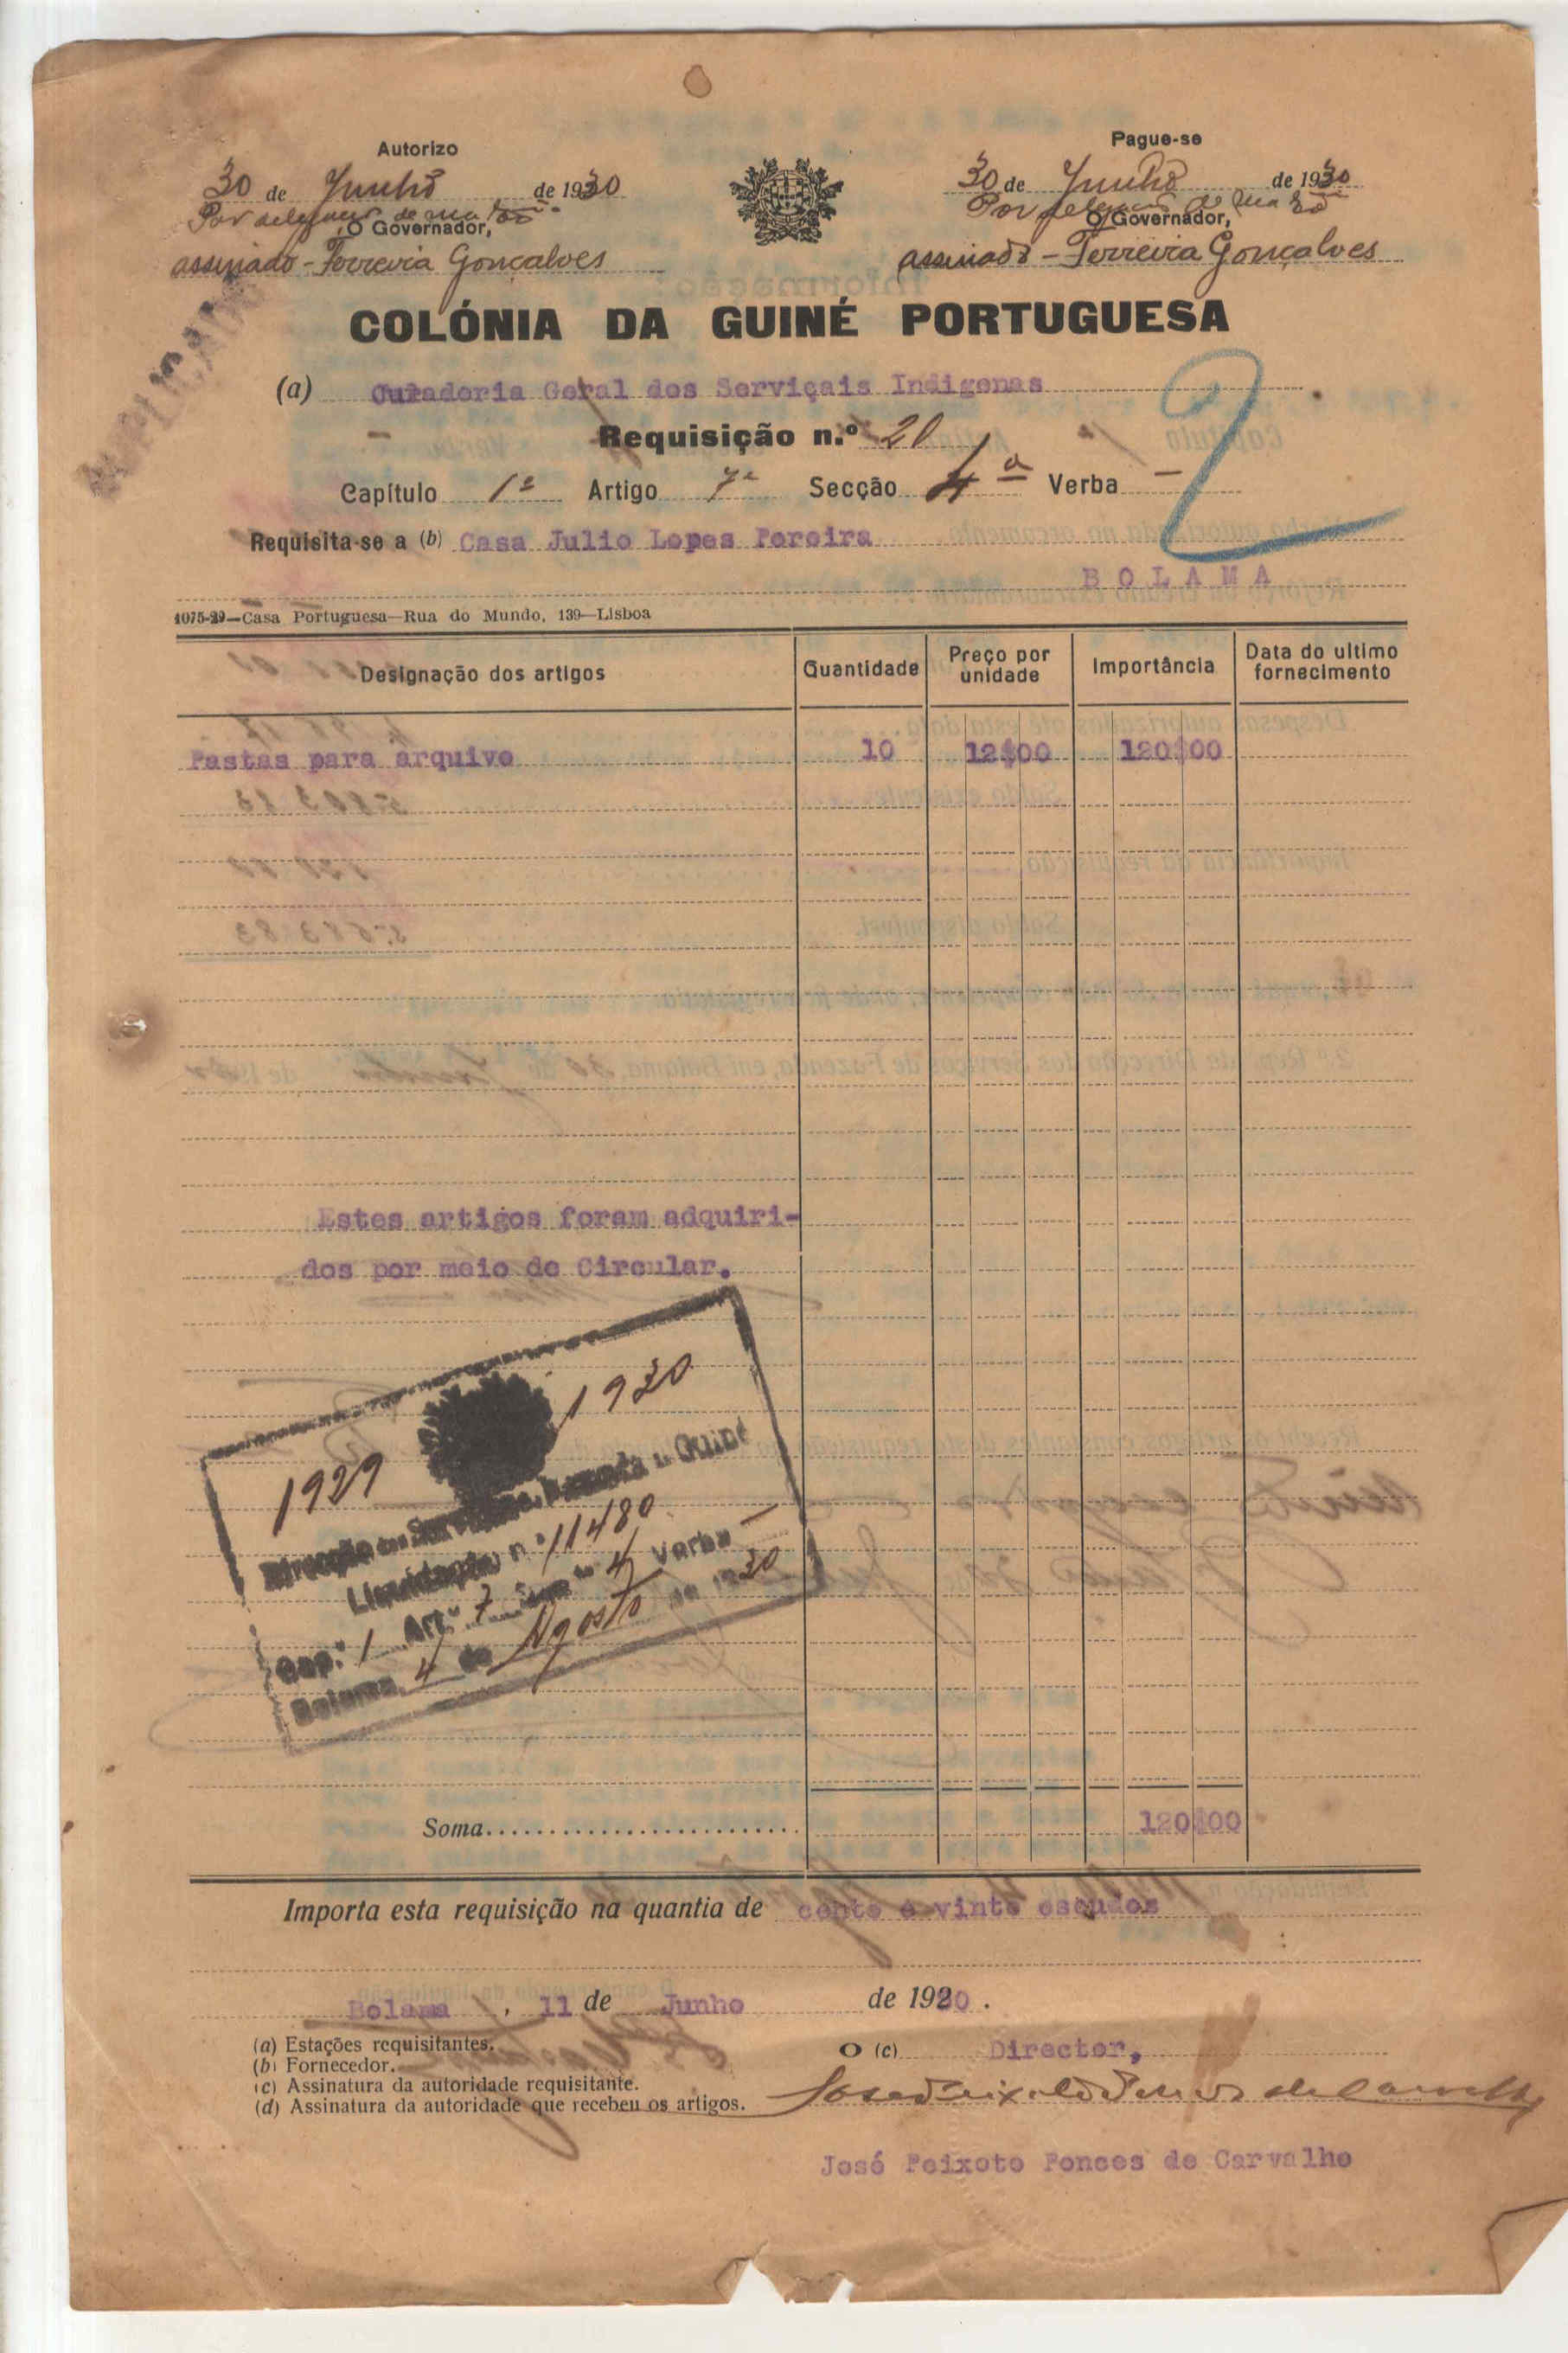 Autorizo
30 de Junho de 1930
Por de
O Governador,
assinado - Ferreira Gonçalves
Pague-se
30 de Junho de 1930
Por de
O Governador,
assinado - Ferreira Gonçalves
DUPLICADO
COLÓNIA DA GUINÉ PORTUGUESA
(a) Curadoria Geral dos Serviçais Indigenas
Requisição n.º 20
2
Capítulo 1º Artigo 7º Secção 4ª Verba —
Requisita-se a (b) Casa Julio Lopes Pereira
BOLAMA
1075-29—Casa Portuguesa—Rua do Mundo, 139—Lisboa
Designação dos artigos Quantidade Preço por unidade Importância Data do ultimo fornecimento
Pastas para arquivo 10 12$00 120$00
Estes artigos foram adquiri-
dos por meio de Circular.
1929 1930
Direcção dos Serviços Fazenda Guiné
Liquidação n.º 11480
Cap.º 1 Art.º 7 4 Verba —
Bolama 4 de Agosto de 1930
Soma........................ 120$00
Importa esta requisição na quantia de cento e vinte escudos
Bolama, 11 de Junho de 1930.
(a) Estações requisitantes.
(b) Fornecedor.
(c) Assinatura da autoridade requisitante.
(d) Assinatura da autoridade que recebeu os artigos.
O (c) Director,
José Peixoto Ponces de Carvalho
José Peixoto Ponces de Carvalho